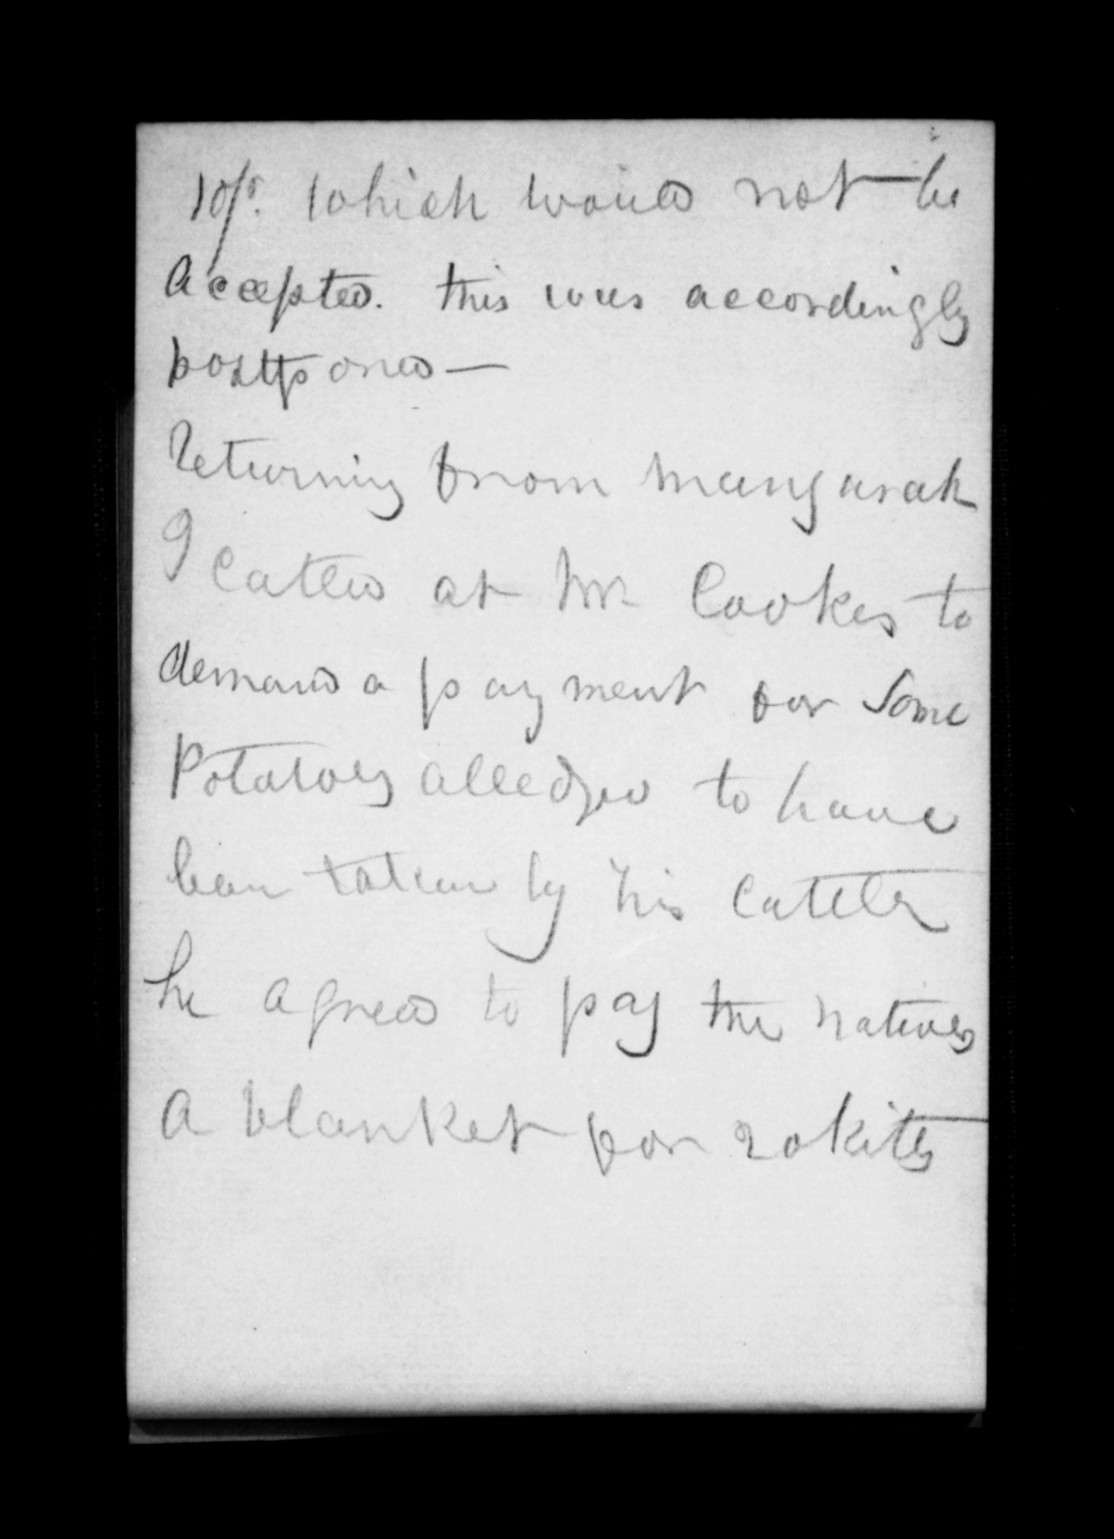 10/s. which would not be
Accepted. this was accordingly
postponed —
Returning from mangarak
I called at Mr Cookes to
demand a payment for Some
Potatoes alledged to have
been taken by his Cattle
he agreed to pay the natives
A blanket for 20 kits